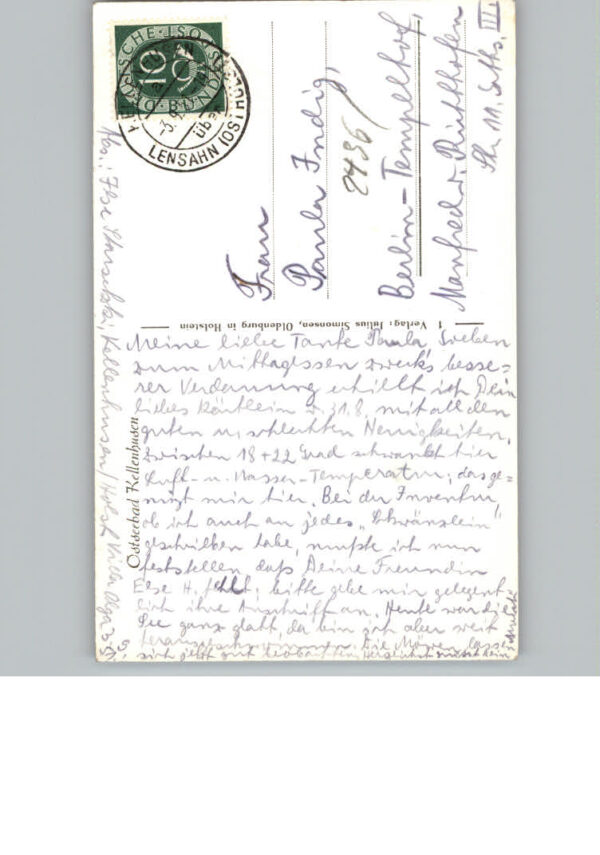 DEUTSCHE BUNDESPOST
10
LENSAHN (OS
-3.9.
üb
Frau
Paula Indig,
2436/
Berlin-Tempelhof,
Manfred v. Richthofen
Str. 11. Gths. III
1 Verlag: Julius Simonsen, Oldenburg in Holstein
Ostseebad Kellenhusen
Abs.: Ilse Kellenhusen/Holst Villa Olga
Meine liebe Tante Paula, Soeben
zum Mittagessen zwecks besse=
rer Verdauung erhielt ich Dein
liebes Kärtlein v. 31.8. mit all den
guten u. schlechten Neuigkeiten.
Zwischen 18+22 Grad schwankt hier
Luft- u. Wasser-Temperatur, das ge=
nügt mir hier. Bei der Inventur,
ob ich auch an jedes „Schwänzlein"
geschrieben habe, mußte ich nun
feststellen daß Deine Freundin
Else H. fehlt, bitte gebe mir gelegent
lich ihre Anschrift an. Heute war die
See ganz glatt, da bin ich aber weit
herausgeschwommen. Die Möwen lassen
sich jetzt gut beobachten. Herzlichst